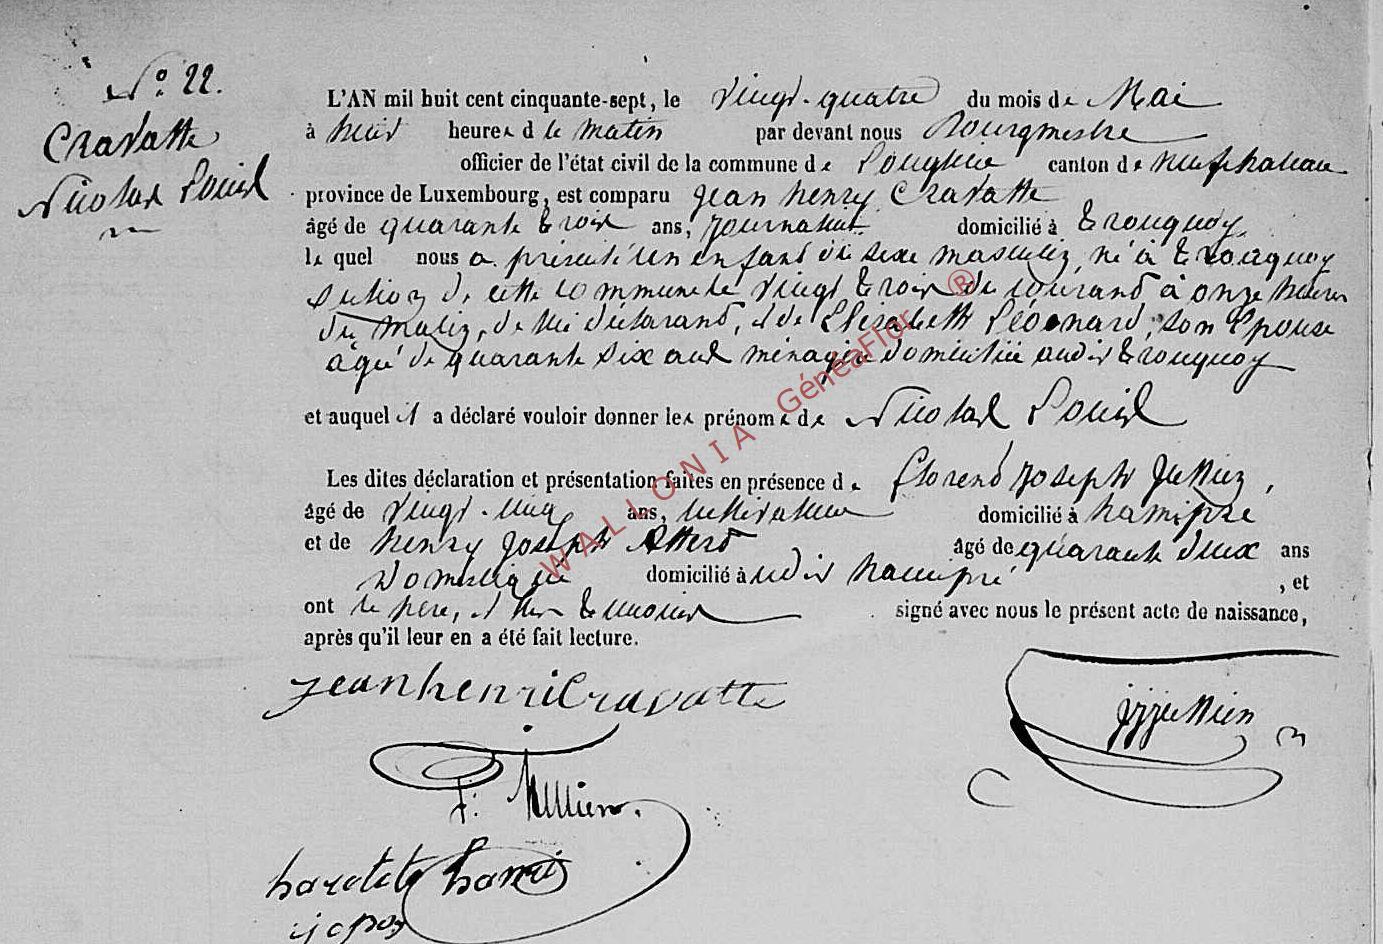 N° 22.
Cravatte
Nicolas Louis
L'AN mil huit cent cinquante-sept, le vingt-quatre du mois de Mai
à huit heures du matin par devant nous Bourgmestre
officier de l'état civil de la commune de Longlier canton de neufchateau
province de Luxembourg, est comparu jean henry Cravatte
âgé de quarante trois ans, journalier domicilié à tronquoy,
le quel nous a présenté un enfant du sexe masculin, né à tronquoy
section de cette commune le vingt trois du courant à onze heures
du matin, de lui déclarant, et de Elisabeth Léonard, son Epouse
agée de quarante six ans ménagère domiciliée audit tronquoy
et auquel il a déclaré vouloir donner les prénoms de Nicolas Louis
Les dites déclaration et présentation faites en présence de florent joseph
âgé de vingt-cinq ans, cultivateur domicilié à hamipré
et de henry joseph âgé de quarante deux ans
Domestique domicilié audit hamipré , et
ont le père, et les témoins signé avec nous le présent acte de naissance,
après qu'il leur en a été fait lecture.
jean henri Cravatte
F:
WALLONIA GénéaFlor ®